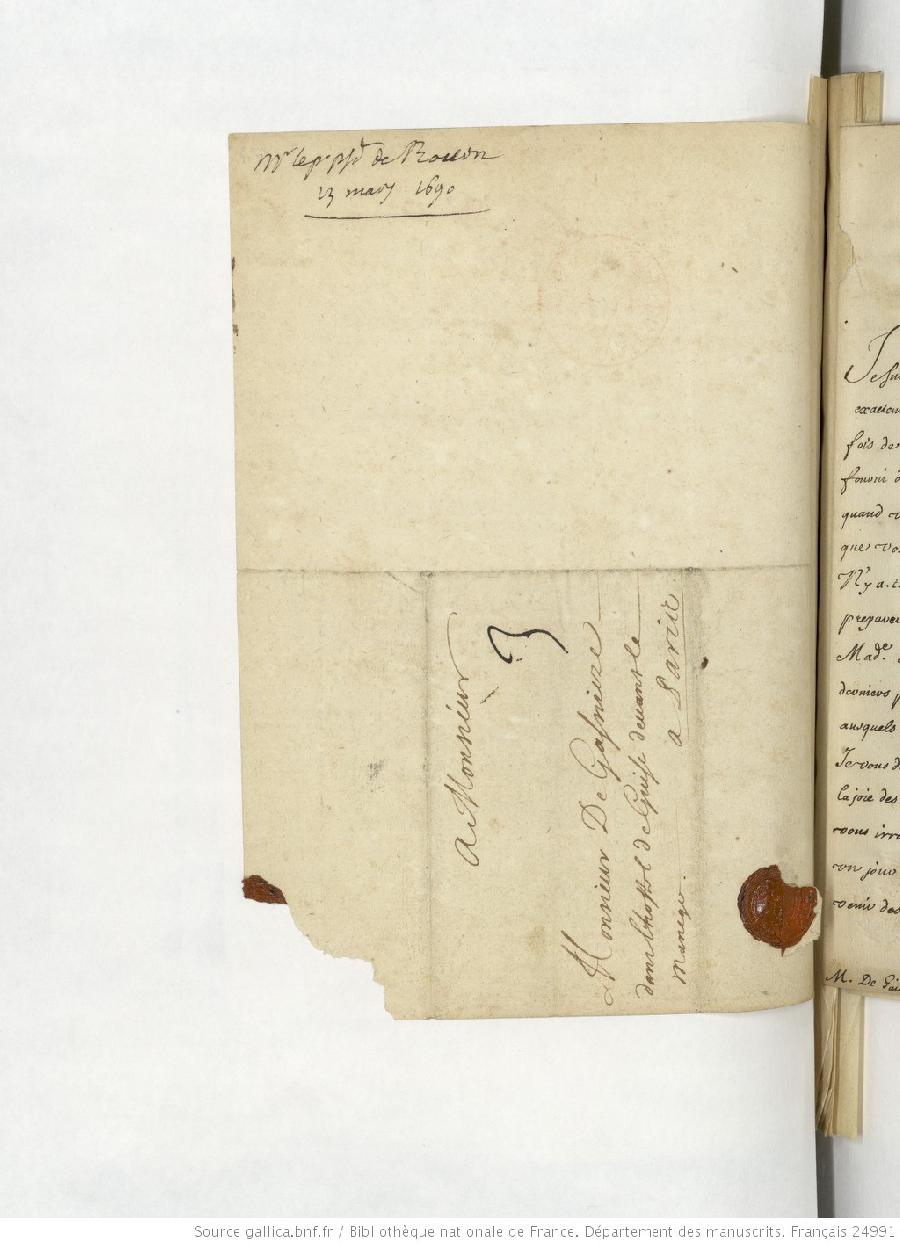 Mr le pr psdt de Rouen
13 mars 1690
A Monsieur
3
A Monsieur De Gaignieres
dans lhostel de Guise devant le
Manege. a Paris
Je
exacte
fois de
fournir
quand v
que vo
N'y a-t
prepare
Made.
derniers p
ausquels
Je vous d
la joie des
vous irr
un jour
venir des
M. De Gai
Source gallica.bnf.fr / Bibliothèque nationale de France. Département des manuscrits. Français 24991